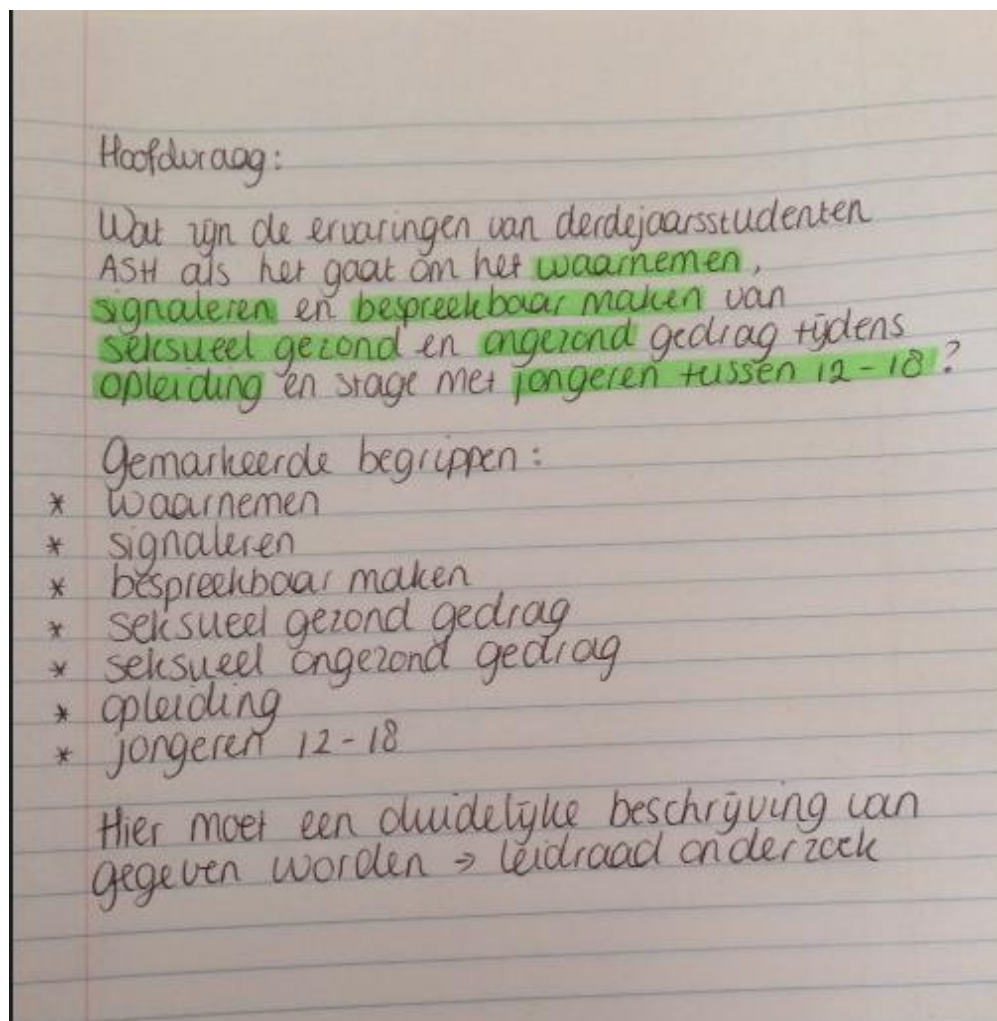 Hoofdvraag:
Wat zijn de ervaringen van derdejaarsstudenten
ASH als het gaat om het waarnemen,
signaleren en bespreekbaar maken van
seksueel gezond en ongezond gedrag tijdens
opleiding en stage met jongeren tussen 12-18?
Gemarkeerde begrippen:
* waarnemen
* signaleren
* bespreekbaar maken
* seksueel gezond gedrag
* seksueel ongezond gedrag
* opleiding
* jongeren 12-18
Hier moet een duidelijke beschrijving van
gegeven worden → leidraad onderzoek